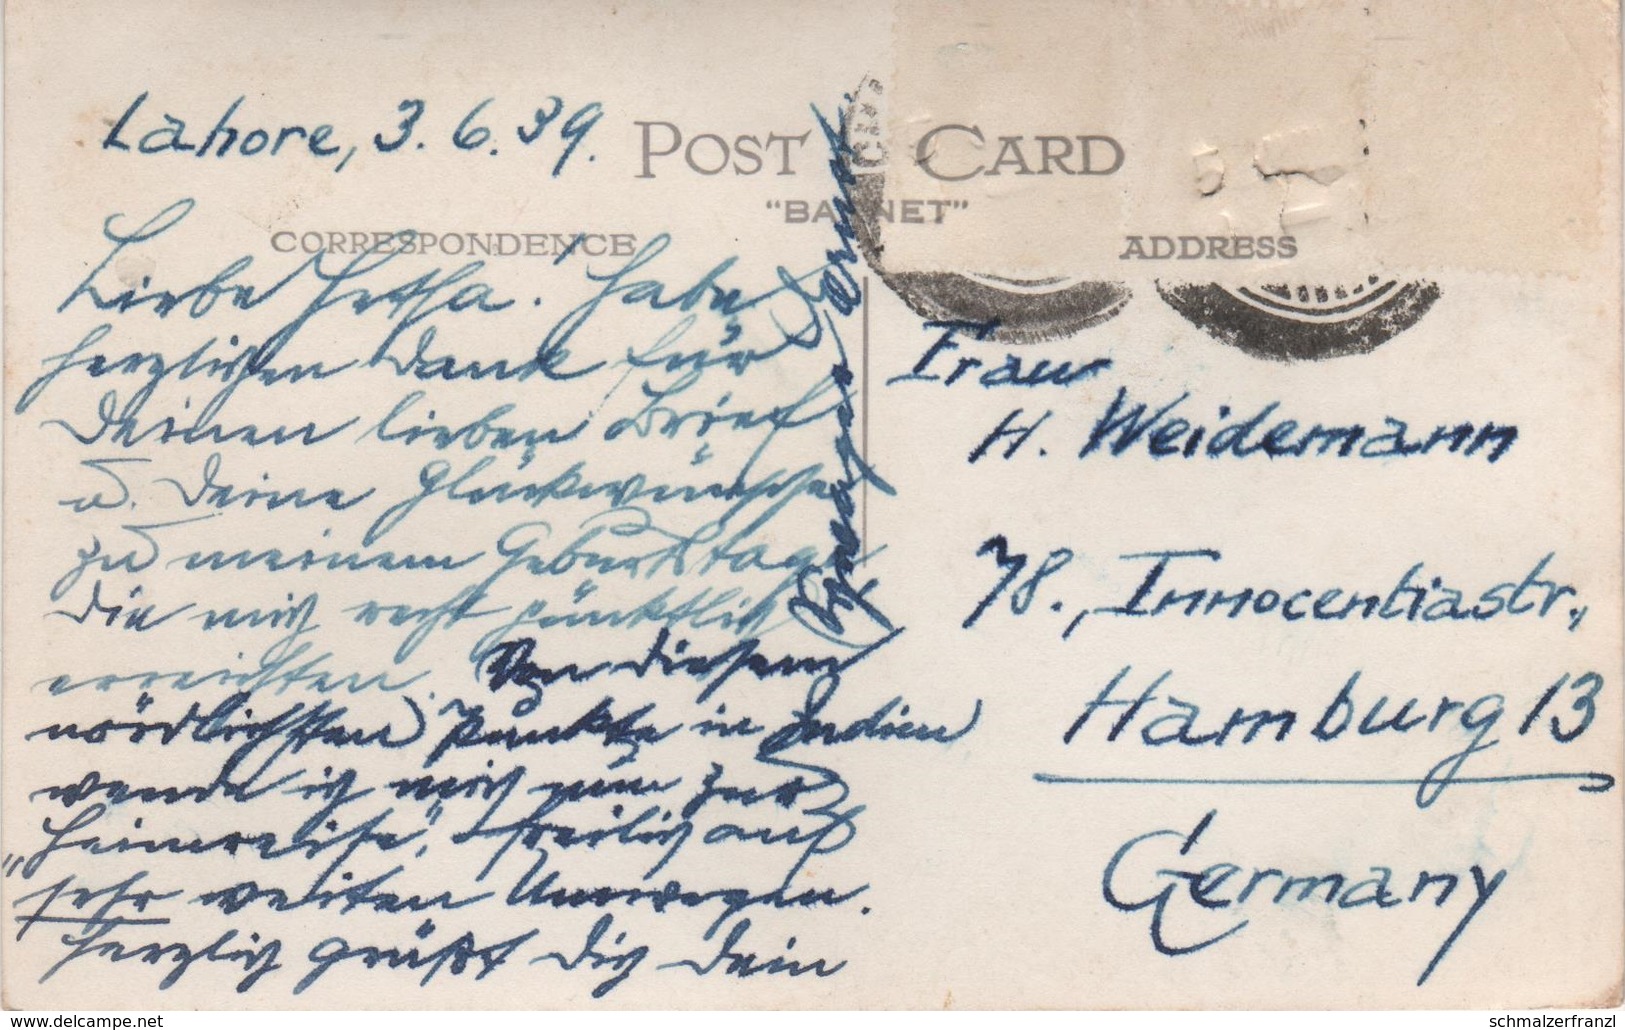 Lahore, 3.6.39.
POST CARD
"BARNET"
CORRESPONDENCE
ADDRESS
Liebe Hertha! Habe
herzlichen Dank für
Deinen lieben Brief
u. Deine Glückwünsche
zu meinem Geburtstage
die mich recht pünktlich
erreichten. Von diesem
nördlichsten Punkte in Indien
wende ich mich nun zur
„Heimreise“, freilich auf
sehr weiten Umwegen.
Herzlich grüßt Dich Dein
Ernst
Frau
H. Weidemann
78., Innocentiastr.,
Hamburg 13
Germany
www.delcampe.net
schmalzerfranzl